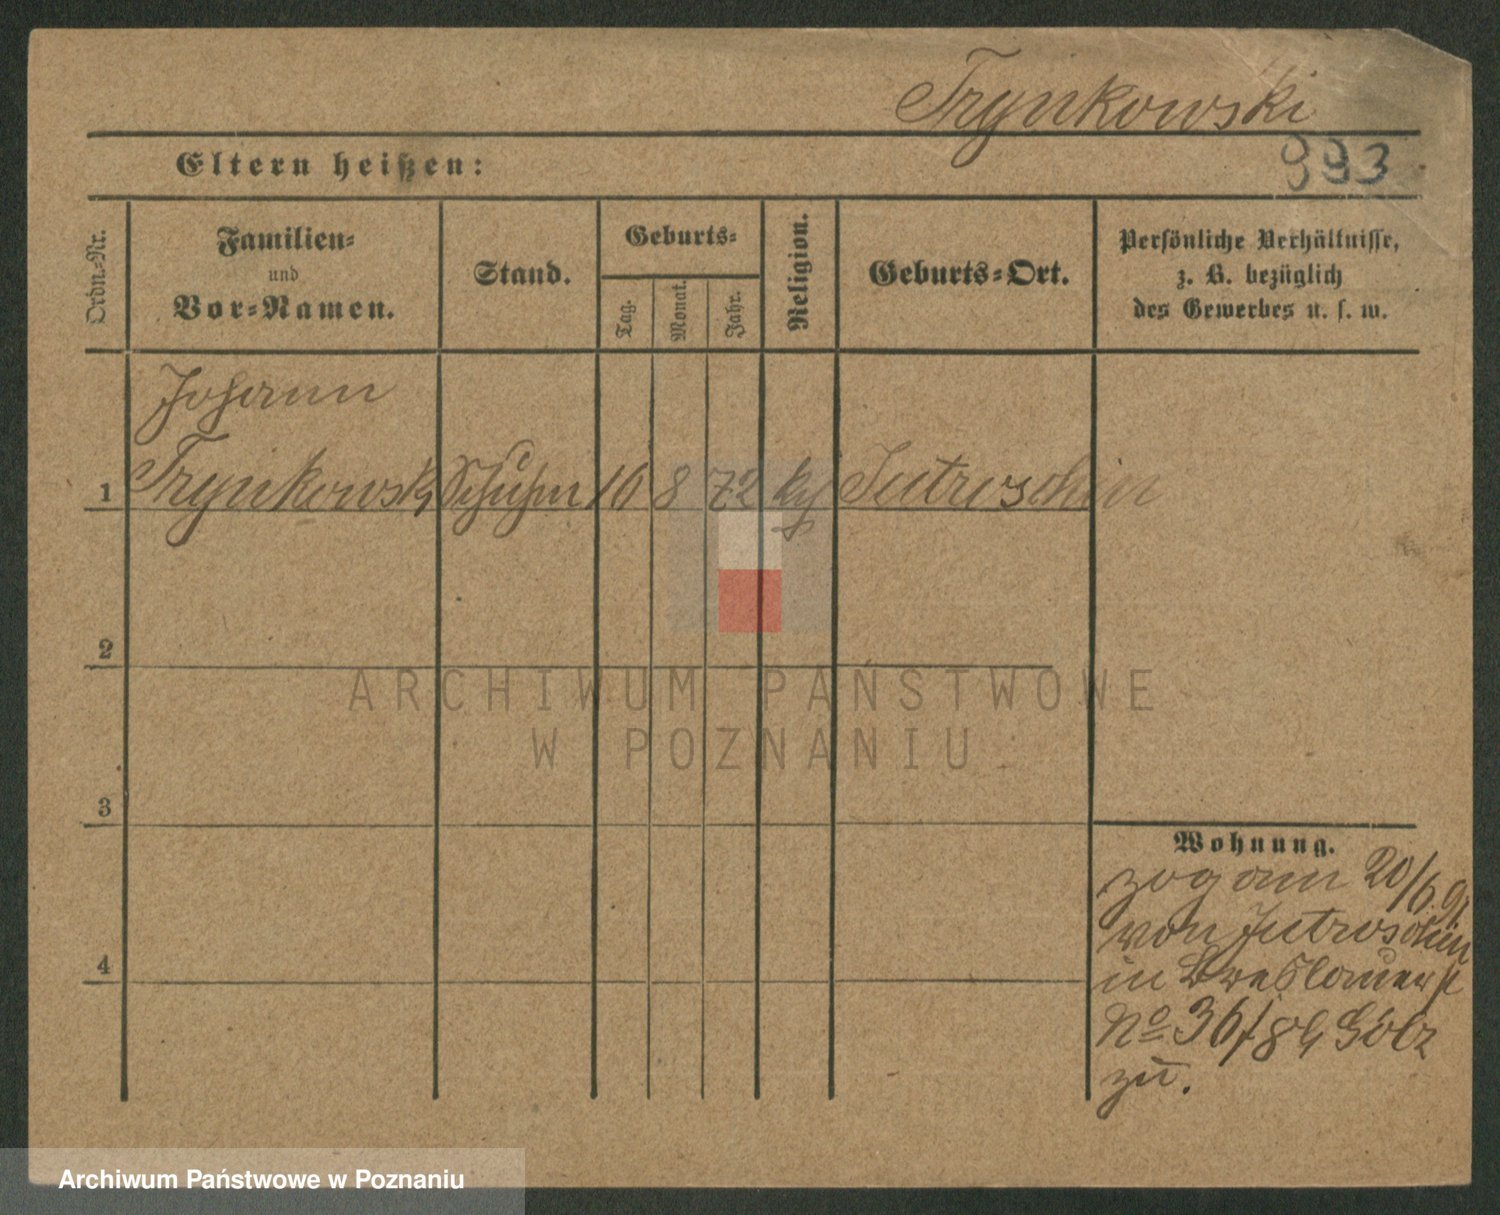 Trynkowski
993
Eltern heißen:
Ordn.-Nr.
Familien-
und
Vor-Namen.
Stand.
Geburts-
Tag.
Monat.
Jahr.
Religion.
Geburts-Ort.
Persönliche Verhältnisse,
z. B. bezüglich
des Gewerbes u. s. w.
Johann
1 Trynkowski Schuhm 16 8 72 Jutroschin
2
3
4
Wohnung.
zog am 20/6.
von Jutroschin
in Breslauerst
No 36/ Götz
zu.
ARCHIWUM PAŃSTWOWE
W POZNANIU
Archiwum Państwowe w Poznaniu